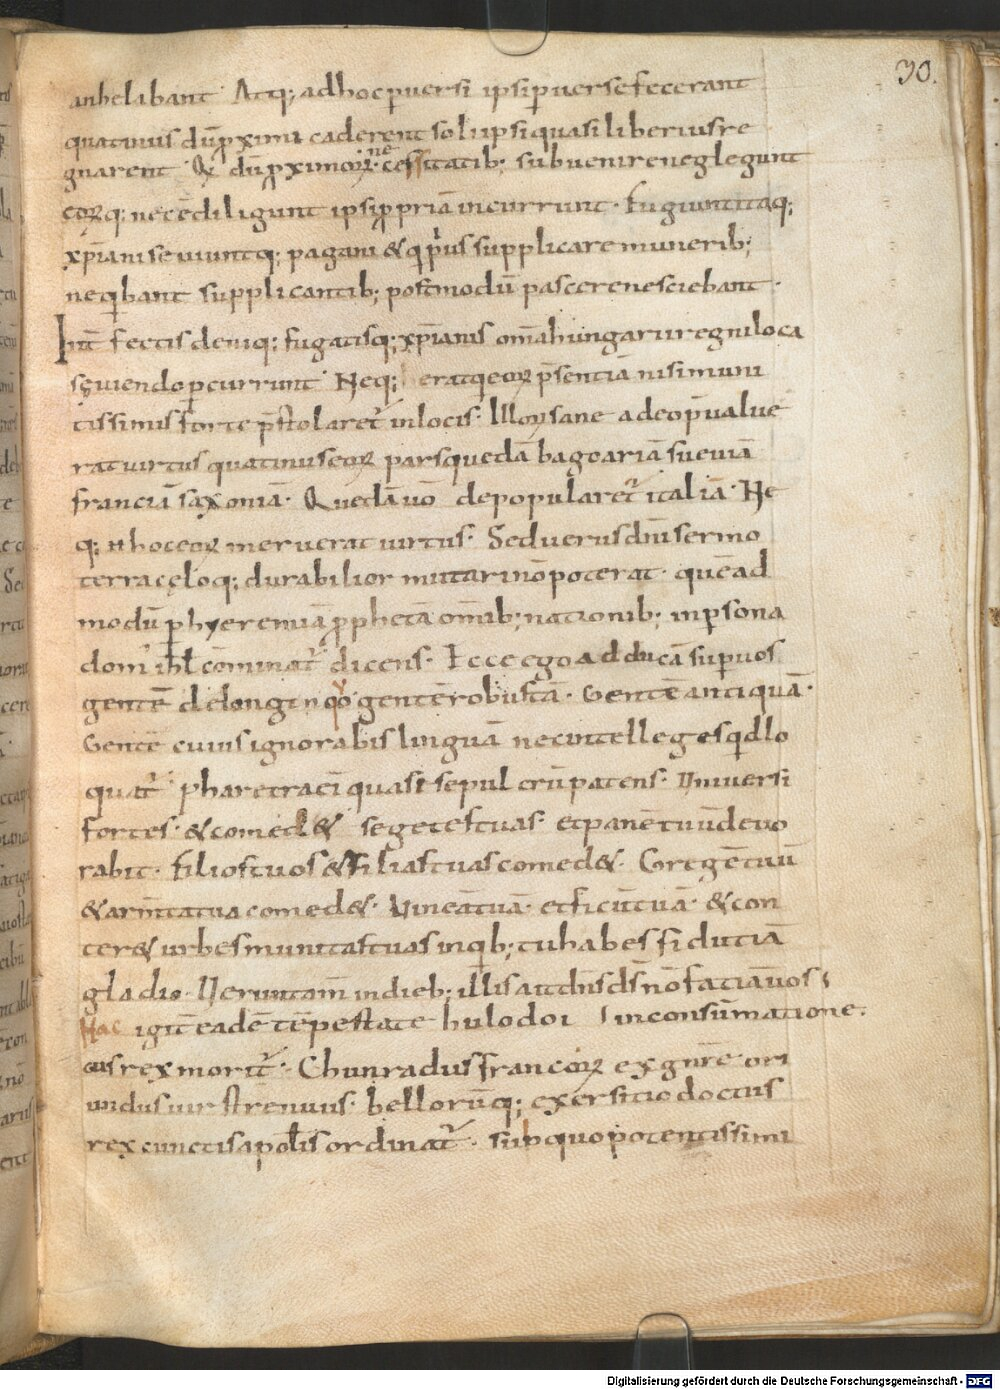 30.
anhelabant. Atq; adhoc puersi ipsi puerse fecerant
quatinus dū pximi caderent soli ipsi quasi liberius re
gnarent. Qd dū pximoꝝ necessitatib; subuenire neglegunt
eorꝝq; necē diligunt ipsi ppriā incurrunt. Fugiunt itaq;
xp̄iani seuiuntq; pagani & q prius supplicare munerib;
neqbant supplicantib; postmodū parcere nesciebant.
Int̄fectis deniq; fugatisq; xp̄ianis om̄a hungarii regni loca
sęuiendo pcurrunt. Neq; erat q eoꝝ p̄sentiā nisi muni
tissimis forte p̄stolaret̄ in locis. Illoꝝ sane adeo p̄ualue
rat uirtus quatinus eoꝝ pars quedā bagoariā sueuiā
franciā saxoniā. Quedā uō depopularet̄ italiā. Ne
q; hoc eoꝝ meruerat uirtus. Sed uerus dn̄i sermo
terra cęloq; durabilior mutari nō poterat. quēad
modū p hyeremiā pphetā om̄ib; nationib; in psona
dom' isr̄l cōminat̄ dicens. Ecce ego adducā sup uos
gentē de longinqo gentē robustā. Gentē antiquā.
Gentē cuius ignorabis linguā nec intelleges qd lo
quat̄. Pharetra ei quasi sepulcrū patens. Uniuersi
fortes. & comed& segetes tuas. et panē tuū deuo
rabit. Filios tuos & filias tuas comed&. Gregē tuū
& arm̄ta tua comed&. Uineā tuā. et ficū tuā. & con
ter& urbes munitas tuas in qb; tu habes fidutiā
gladio. Ueruntam̄ in dieb; illis ait dn̄s ds̄ nō fatiā uos
Hac igit̄ eadē tēpestate hulodoi in consūmatione.
cus rex morit̄. Chunradus francoꝝ ex gn̄re ori
undus uir strenuus. bellorūq; exersitio doctus
rex cunctis a poplis ordinat̄. sub quo potentissimi
Digitalisierung gefördert durch die Deutsche Forschungsgemeinschaft - DFG